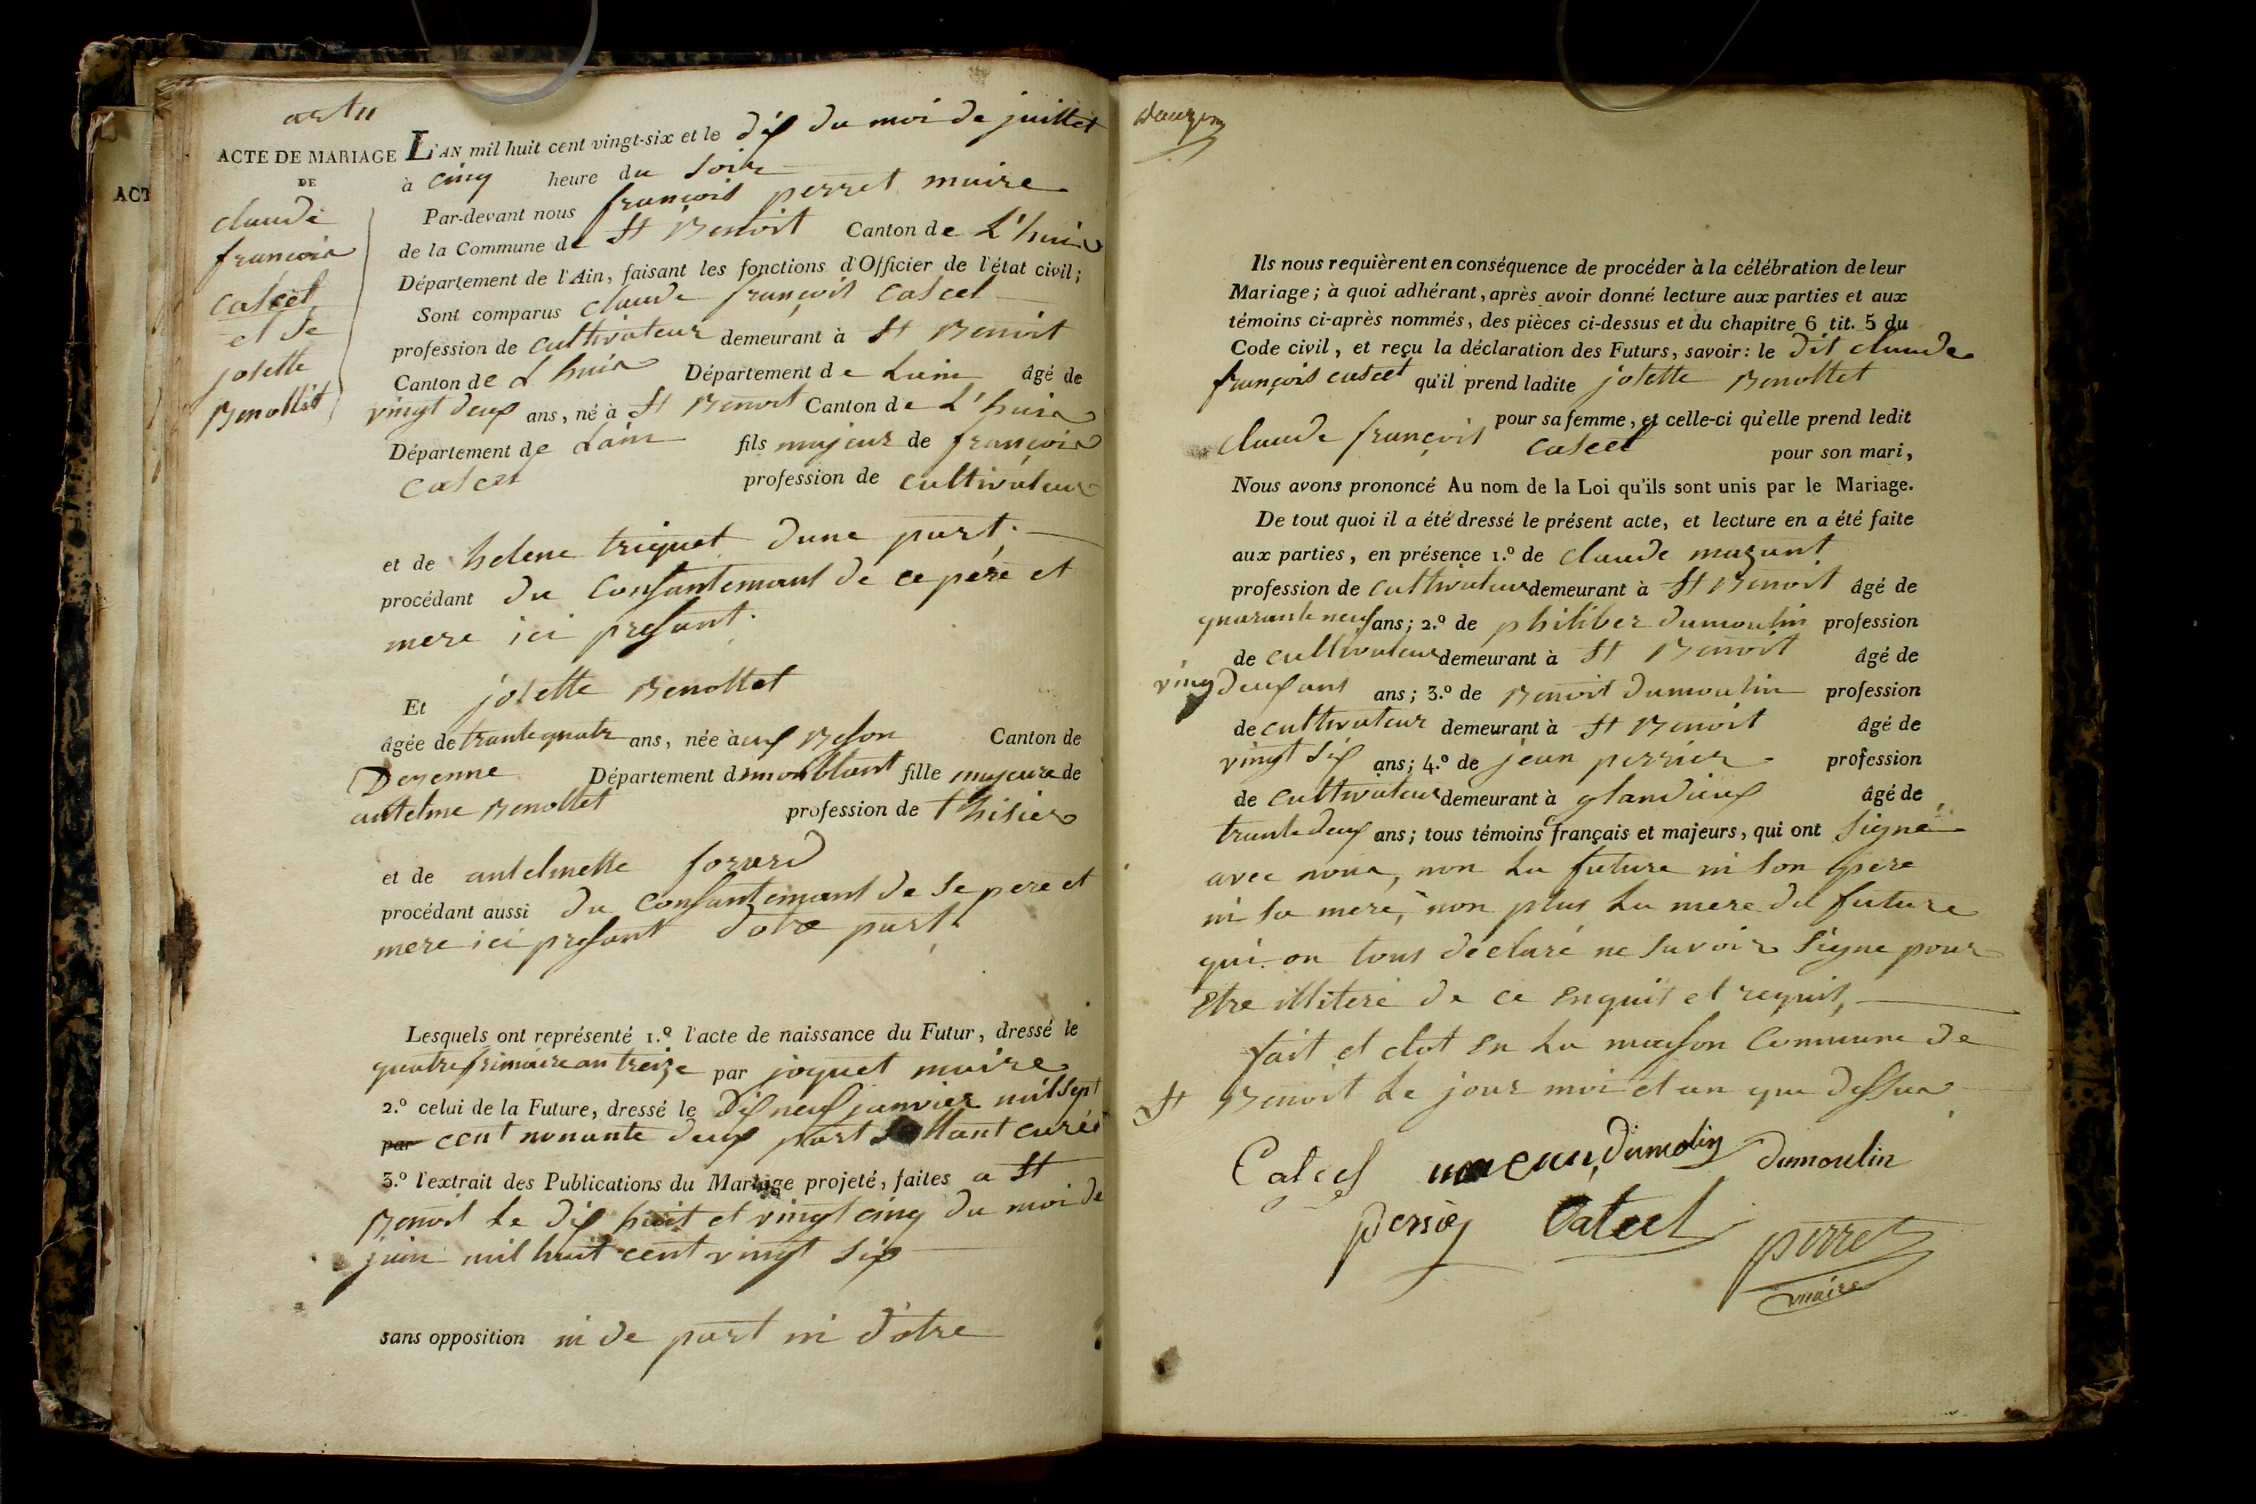 acte 11
ACTE DE MARIAGE
DE
claude
françois
cascet
et de
josette
Benottet
L'AN mil huit cent vingt-six et le dix du moi de juillet
à cinq heure du soire
Par-devant nous françois perret maire
de la Commune de St Benoit Canton de L'huis
Département de l'Ain, faisant les fonctions d'Officier de l'état civil;
Sont comparus claude françois cascet
profession de cultivateur demeurant à St Benoit
Canton de L huis Département de Lain âgé de
vingt deux ans, né à St Benoit Canton de L'huis
Département de Lain fils majeur de françois
cascet profession de cultivateur
et de helene triquet dune part.
procédant du Consantemant de ce pére et
mere ici presant.
Et josette Benottet
âgée de trante quatr ans, née à Canton de
Deyenne Département de monblant fille majeure de
antelme Benottet profession de thisier
et de antelmette forard
procédant aussi du Consantemant de se pere et
mere ici presant dotre part.
Lesquels ont représenté 1.º l'acte de naissance du Futur, dressé le
quatre frimaire an treize par joquet maire
2.º celui de la Future, dressé le dix neuf janvier mil sept
par cent nonante deux part curée
3.º l'extrait des Publications du Mariage projeté, faites a St
Benoit le dix huit et vingt cinq du moi de
juin mil huit cent vingt six
sans opposition ni de part ni d'otre
Ils nous requièrent en conséquence de procéder à la célébration de leur
Mariage; à quoi adhérant, après avoir donné lecture aux parties et aux
témoins ci-après nommés, des pièces ci-dessus et du chapitre 6 tit. 5 du
Code civil, et reçu la déclaration des Futurs, savoir: le dit claude
françois cascet qu'il prend ladite josette Benottet
pour sa femme, et celle-ci qu'elle prend ledit
claude françois cascet pour son mari,
Nous avons prononcé Au nom de la Loi qu'ils sont unis par le Mariage.
De tout quoi il a été dressé le présent acte, et lecture en a été faite
aux parties, en présence 1.º de claude mazant
profession de cultivateur demeurant à St Benoit âgé de
quarante neuf ans; 2.º de philiber dumoulin profession
de cultivateur demeurant à St Benoit âgé de
ving deux ans ans; 3.º de Benoit dumoulin profession
de cultivateur demeurant à St Benoit âgé de
vingt six ans; 4.º de jean perrier profession
de cultivateur demeurant à glandieux âgé de
trante deux ans; tous témoins français et majeurs, qui ont signé
avec nous, non la future ni son pere
ni sa mere, non plus la mere du future
qui on tous déclaré ne savoir signe pour
Etre illiteré de ce enquit et requit,
fait et clot en la maison Commune de
St Benoit le jour moi et an que dessus
Catcet dumolin dumoulin
Catcet perret
maire